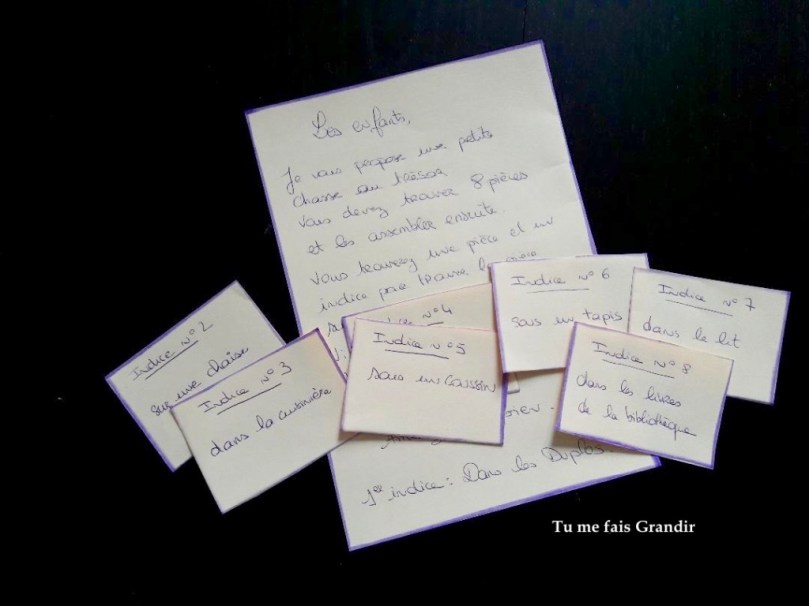 Les enfants,
Je vous propose une petite
chasse au trésor
Vous devez trouver 8 pièces
et les assembler ensuite
Vous trouverez une pièce et un
indice pour trouver la
1er indice : Dans les Duplos.
Indice n°2
sur une chaise
Indice n°3
dans la cuisinière
n°4
Indice n°5
sous un coussin
Indice n°6
sous un tapis
Indice n°7
dans le lit
Indice n°8
dans les livres
de la bibliothèque
Tu me fais Grandir